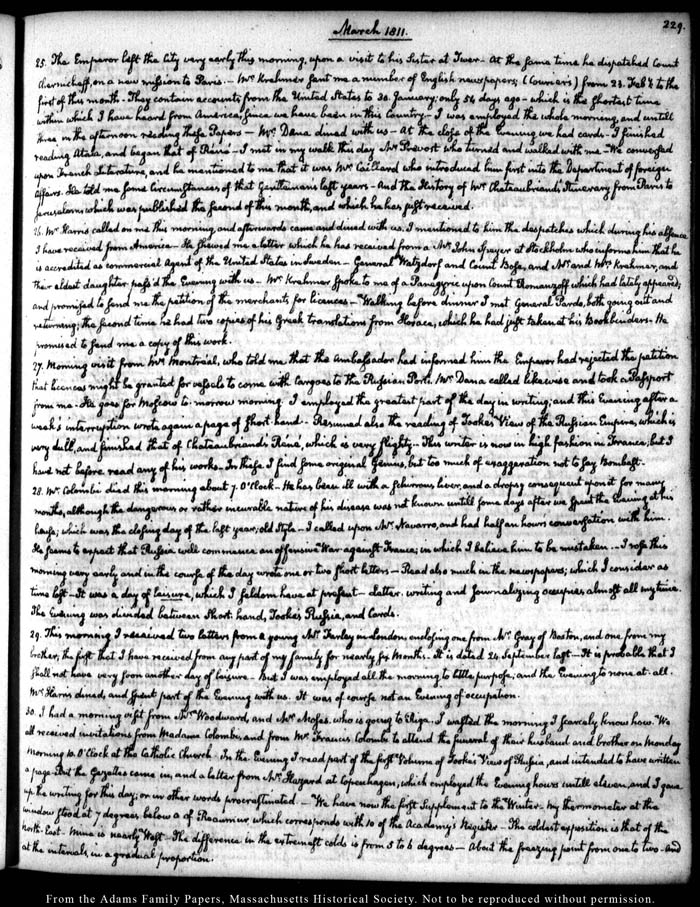 March 1811.
229.
25. The Emperor left the City very early this morning, upon a visit to his Sister at Twer. At the same time he dispatched Count
Chernicheff, on a new mission to Paris. — Mr. Krahmer sent me a number of English newspapers; (Couriers) from 23. Feby. to the
first of this month. They contain accounts from the United States to 30. January; only 56 days ago — which is the shortest time
within which I have heard from America, since we have been in this Country — I was employed the whole morning, and untill
three in the afternoon reading these Papers — Mr. Dana dined with us — At the close of the Evening we had cards. I finished
reading Atala, and began that of René — I met in my walk this day Mr. Prevost who turned and walked with me — We conversed
upon French Literature, and he mentioned to me that it was Mr. Caillard who introduced him first into the Department of foreign
affairs. He told me some circumstances of that Gentleman's last years — And the History of Mr. Chateaubriand's Itinerary from Paris to
Jerusalem which was published the second of this month, and which he has just received.
26. Mr. Harris called on me this morning, and afterwards came and dined with us. I mentioned to him the despatches which during his absence
I have received from America — He shewed me a letter which he has received from a Mr. John Speyer at Stockholm who informs him that he
is accredited as commercial agent of the United States in Sweden — General Watzdorf and Count Bose, and Mr. and Mrs. Krahmer, and
their eldest daughter pass'd the Evening with us — Mr. Krahmer spoke to me of a Panegyric upon Count Romanzoff which had lately appeared;
and promised to send me the petition of the merchants for licences — Walking before dinner I met General Pardo, both going out and
returning; the second time he had two copies of his Greek translations from Horace, which he had just taken at his Bookbinders. He
promised to send me a copy of this work.
27. Morning visit from Mr. Montréal, who told me that the Ambassador had informed him the Emperor had rejected the petition
that licences might be granted for vessels to come with cargoes to the Russian Ports. Mr. Dana called likewise and took a Passport
from me — He goes for Moscow to-morrow morning. I employed the greatest part of the day in writing; and this Evening after a
week's interruption wrote again a page of short hand. — Resumed also the reading of Tooke's View of the Russian Empire, which is
very dull, and finished that of Chateaubriand's René, which is very flighty. — This writer is now in high fashion in France; but I
have not before read any of his works. In these I find some original Genius, but too much of exaggeration not to say Bombast.
28. Mr. Colombi died this morning about 7. O'Clock — He has been ill with a schirrous liver, and a dropsy consequent upon it for many
months, although the dangerous or rather incurable nature of his disease was not known untill some days after we spent the Evening at his
house; which was the closing day of the last year, old Style — I called upon Mr. Navarro, and had half an hours conversation with him.
He seems to expect that Russia will commence an offensive War against France; in which I believe him to be mistaken. — I rose this
morning very early and in the course of the day wrote one or two short letters — Read also much in the newspapers; which I consider as
time lost — It was a day of leisure, which I seldom have at present — letter writing and Journalizing occupies almost all my time.
The Evening was divided between short hand, Tooke's Russia, and Cards.
29. This morning I received two letters from a young Mr. Farley in London, enclosing one from Mr. Gray of Boston, and one from my
brother, the first that I have received from any part of my family for nearly six months. It is dated 24. September last — It is probable that I
shall not have very soon another day of leisure — But I was employed all the morning to little purpose, and the Evening to none at all.
Mr. Harris dined, and spent part of the Evening with us. It was of course not an Evening of occupation.
30. I had a morning visit from Mr. Woodward, and Mr. Moses, who is going to Riga. I wasted the morning I scarcely know how. We
all received invitations from Madame Colombi, and from Mr. Francis Colombi to attend the funeral of their husband and brother on Monday
morning 10. O'Clock at the Catholic Church. In the Evening I read part of the first Volume of Tooke's View of Russia, and intended to have written
a page. But the Gazettes came in, and a letter from Mr. Hazard at Copenhagen, which employed the Evening hours untill eleven, and I gave
up the writing for this day; or in other words procrastinated. — We have now the first Supplement to the Winter. My thermometer at the
window stood at 7 degrees below 0 of Reaumur which corresponds with 10 of the Academy's Register — The coldest exposition is that of the
North-East. Mine is nearly West. The difference in the extremest colds is from 5 to 6 degrees — About the freezing point from one to two — And
at the intervals, in a gradual proportion.
From the Adams Family Papers, Massachusetts Historical Society. Not to be reproduced without permission.